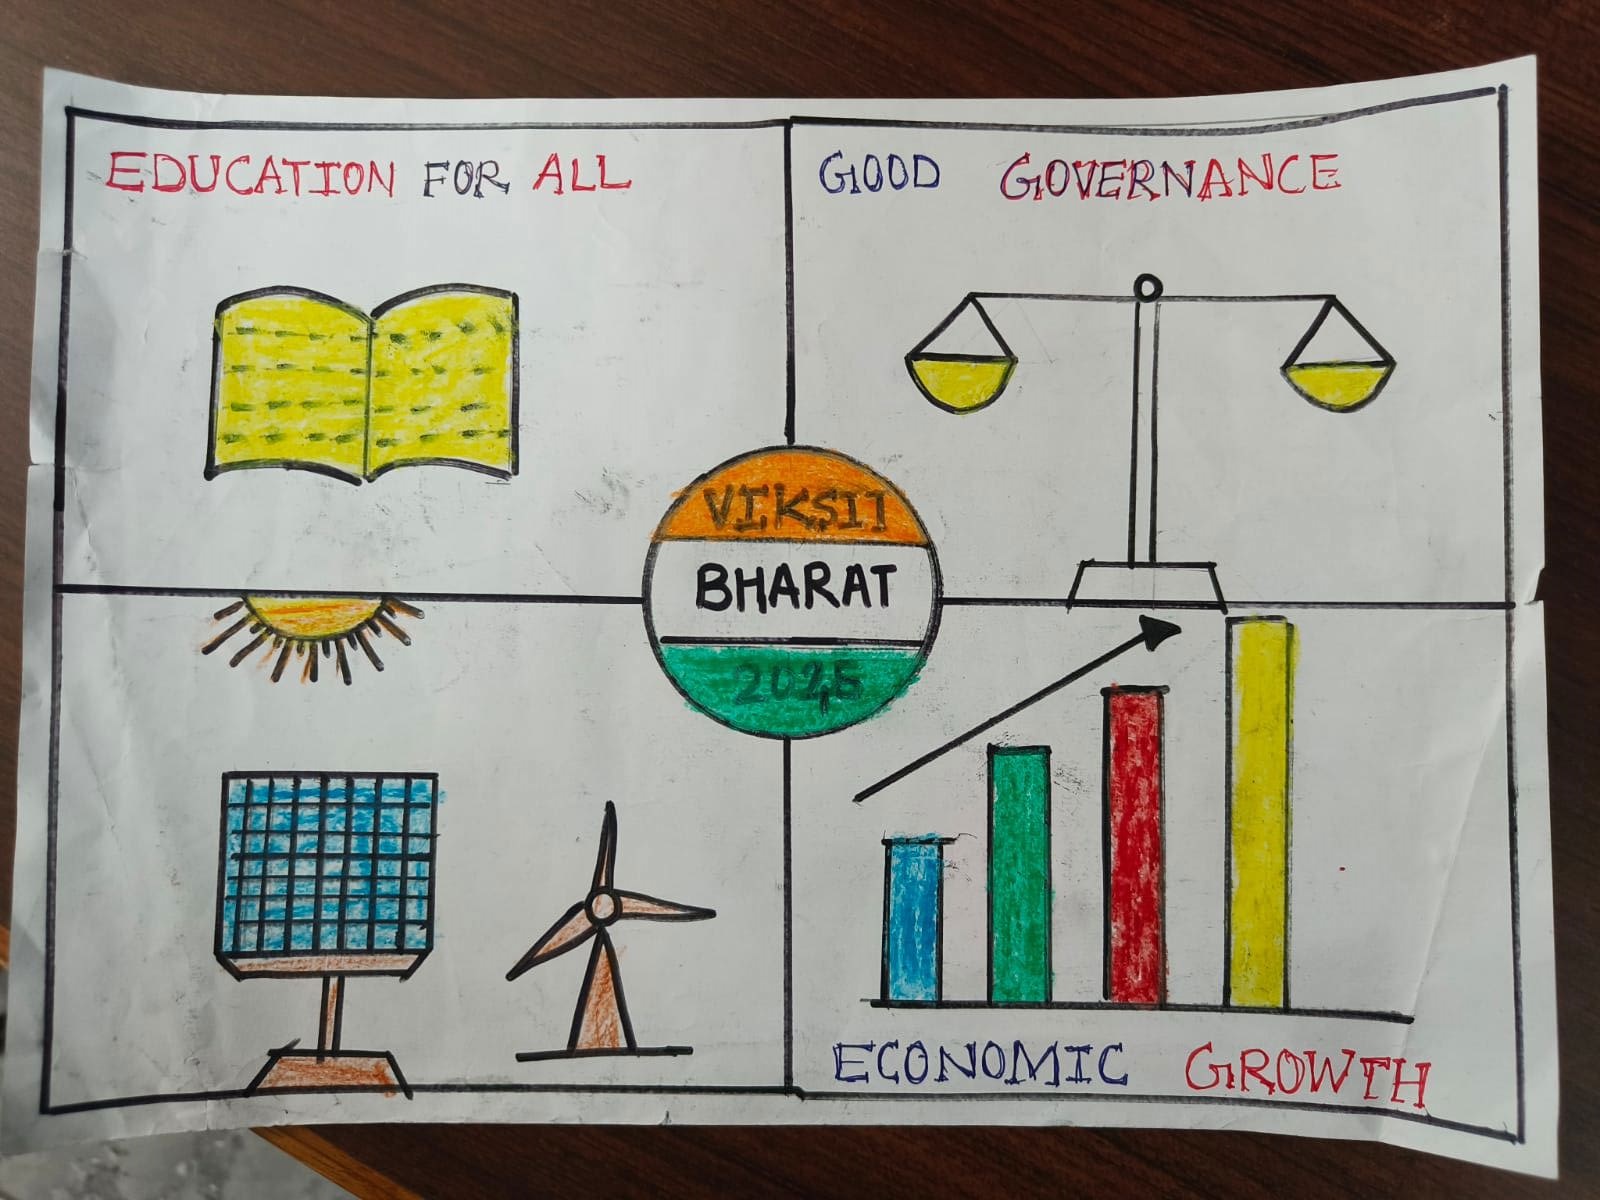 EDUCATION FOR ALL
GOOD GOVERNANCE
VIKSIT
BHARAT
2025
ECONOMIC GROWTH